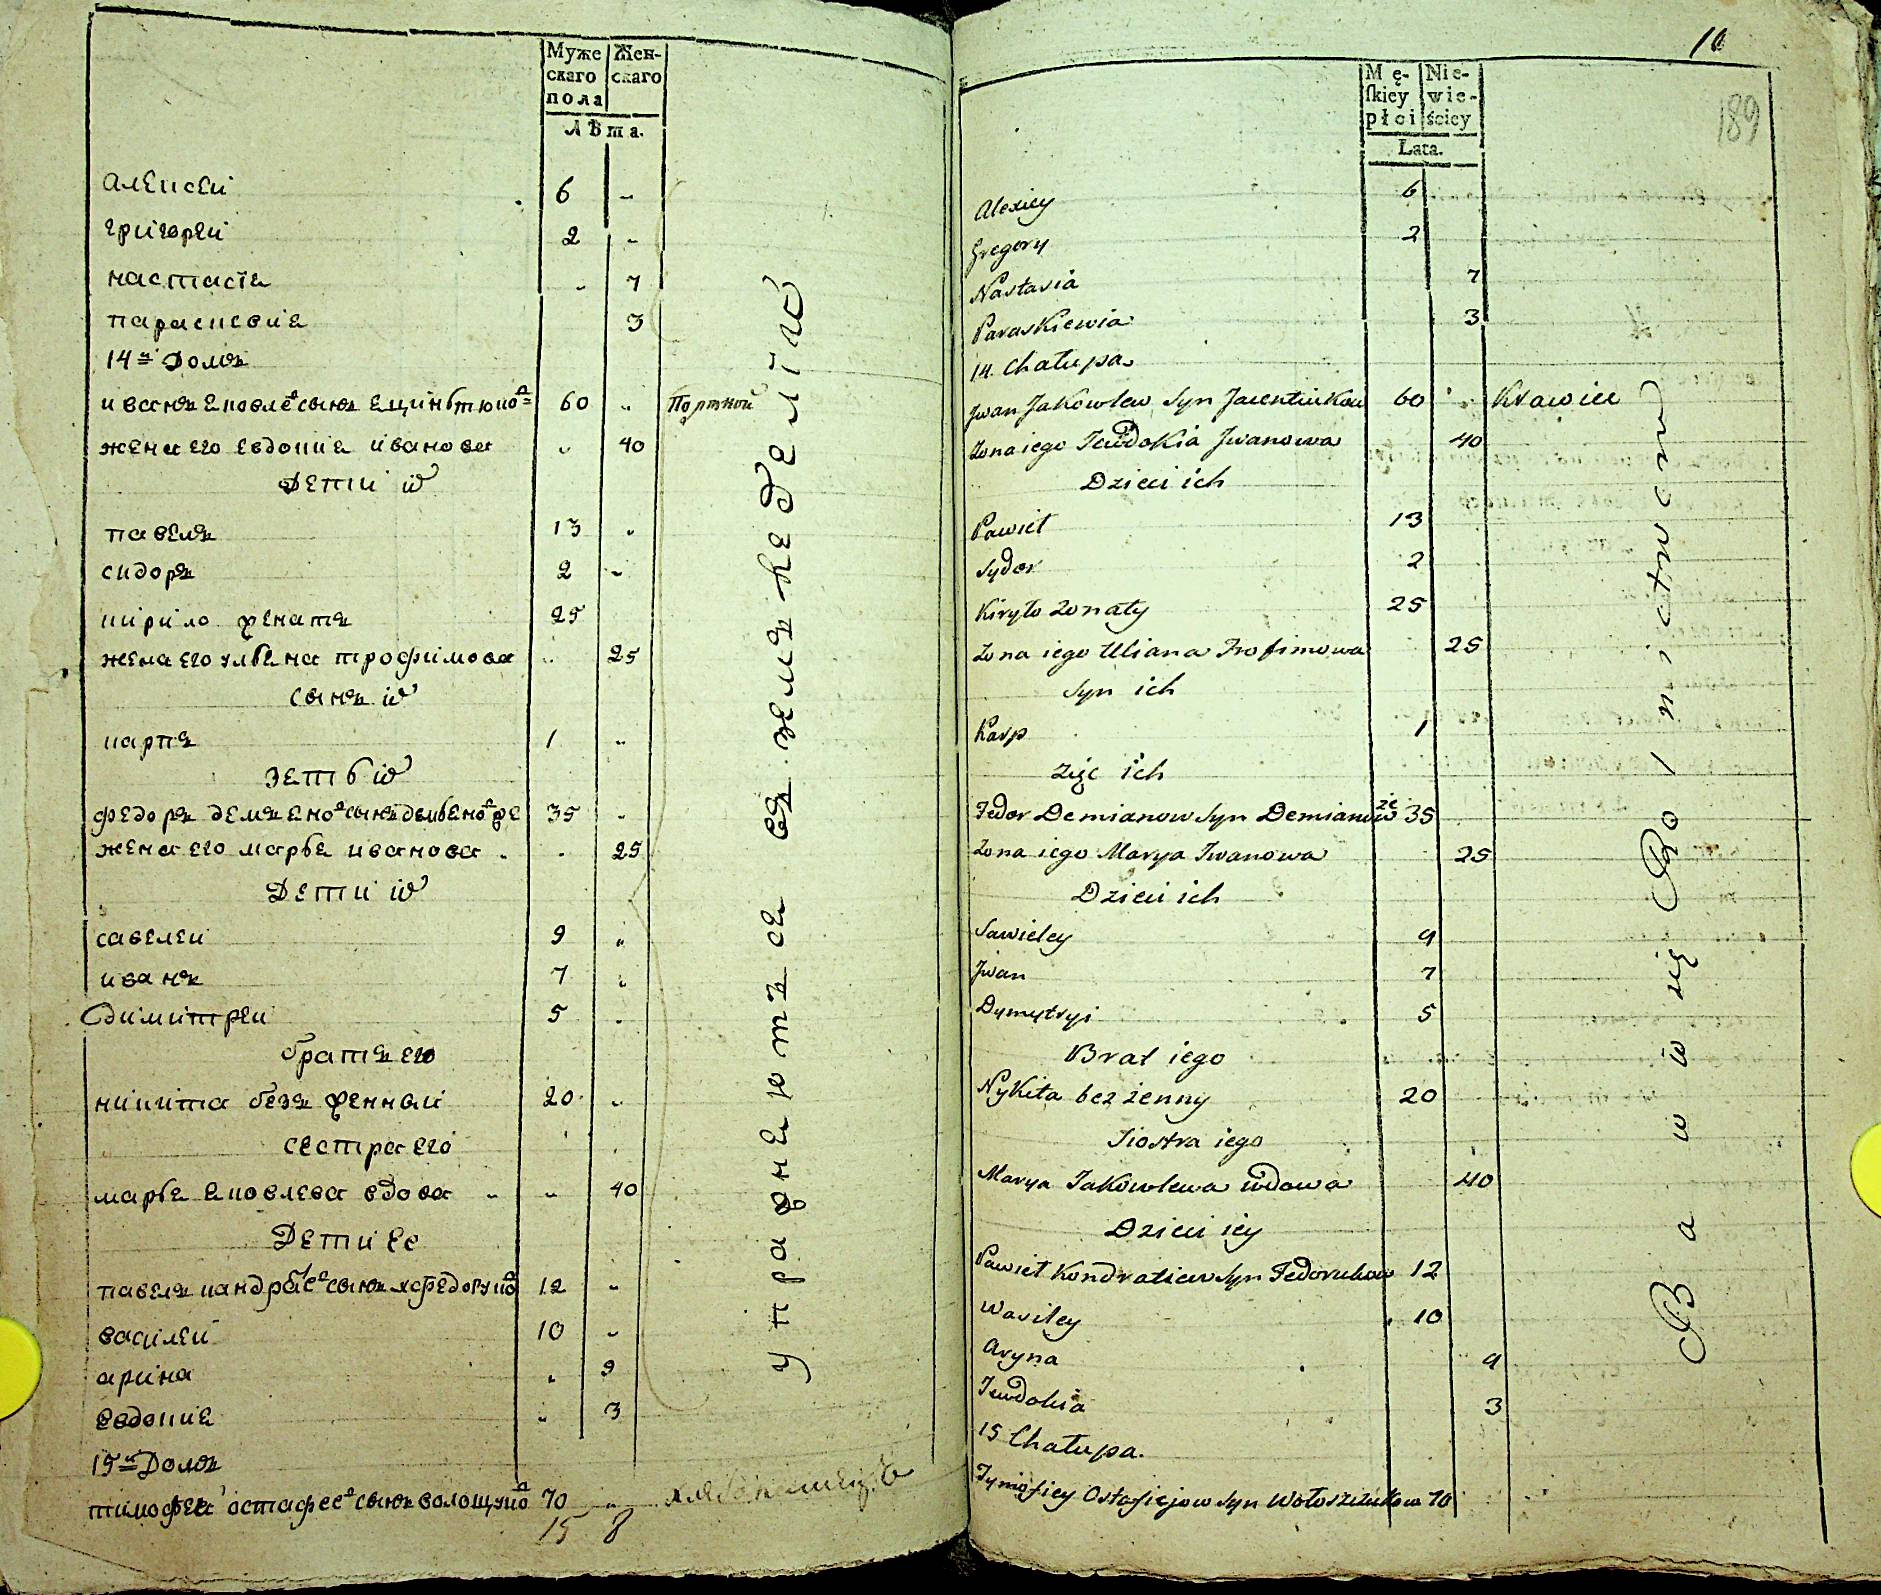 Муже
скаго
пола
Жен-
скаго
Лѣта.
алексей 6 "
григорей 2 "
настасія " 7
параскевия 3
14й домъ
иванъ яковлевъ сынъ яциньтюковъ 60 " Портной
жена его евдокия иванова " 40
Дети их
павелъ 13 "
сидоръ 2 "
кирило женатъ 25
жена его ульяна трофимова " 25
сынъ их
карпъ 1 "
зеть их
федоръ демяновъ сынъ демьяновъ же 35 "
жена его марья иванова " 25
Дети их
савелей 9 "
иванъ 7 "
димитрей 5 "
братъ его
никита безъ женный 20 "
сестра его
марья яковлева вдова " 40
Дети ее
павелъ кандратьевъ сынъ федоруковъ 12 "
василей 10 "
арина " 9
евдокия " 3
15й Домъ
тимофей остафеевъ сынъ волощуковъ 70 "
15 8
упражняютъся въ земледелію
10
189
Mę-
skiey
płci
Nie-
wie-
ściey
Lata.
Alexiey 6
Gregory 2
Nastasia 7
Paraskiewia 3
14. Chałupa
Jwan Jakowlew Syn Jacentiukow 60 " Krawiec
Zona iego Jewdokia Jwanowa 40
Dzieci ich
Paweł 13
Sydor 2
Kiryło zonaty 25
Zona iego Uliana Trofimowa 25
Syn ich
Karp 1
zięć ich
Fedor Demianow Syn Demianow że 35
Zona iego Marya Iwanowa 25
Dzieci ich
Sawieley 9
Jwan 7
Dymytryi 5
Brat iego
Nykita bez żenny 20
Siostra iego
Marya Jakowlewa wdowa 40
Dzieci iey
Pawieł Kondratiew Syn Fedorukow 12
Wasiley 10
Aryna 9
Jewdokia 3
15 Chałupa.
Tymofiey Ostafiejow Syn Wołoszczukow 70
Bawią się Rolnictwem